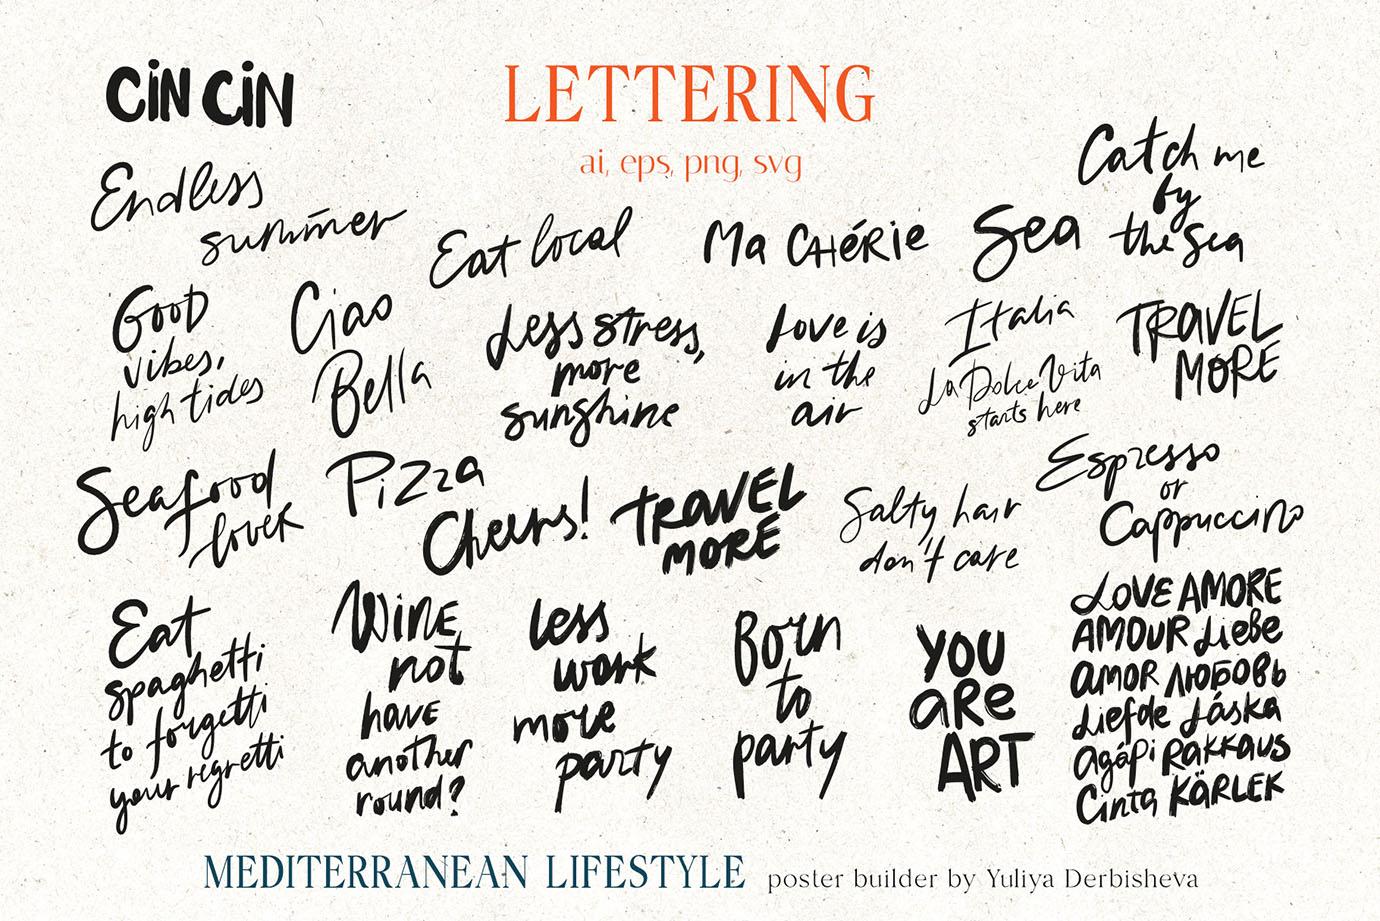 CiN CiN
LETTERING
ai, eps, png, svg
Catch me
by
the Sea
Endless
summer
Eat local
Ma CHÉRie
Sea
Good
vibes,
high tides
Ciao
Bella
Less stress,
more
sunshine
Love is
in the
air
Italia
La Dolce Vita
starts here
TRAVEL
MORE
Seafood
lover
Pizza
Cheers!
TRAVEL
MORE
Salty hair
don't care
Espresso
or
Cappuccino
Eat
spaghetti
to forgetti
your regretti
WiNE
not
have
another
round?
less
work
more
party
Born
to
party
YOU
aRe
ART
LOVE AMORE
AMOUR Liebe
AMOR ЛЮБОВЬ
Liefde Láska
agápi Rakkaus
Cinta KÄRLEK
MEDITERRANEAN LIFESTYLE poster builder by Yuliya Derbisheva